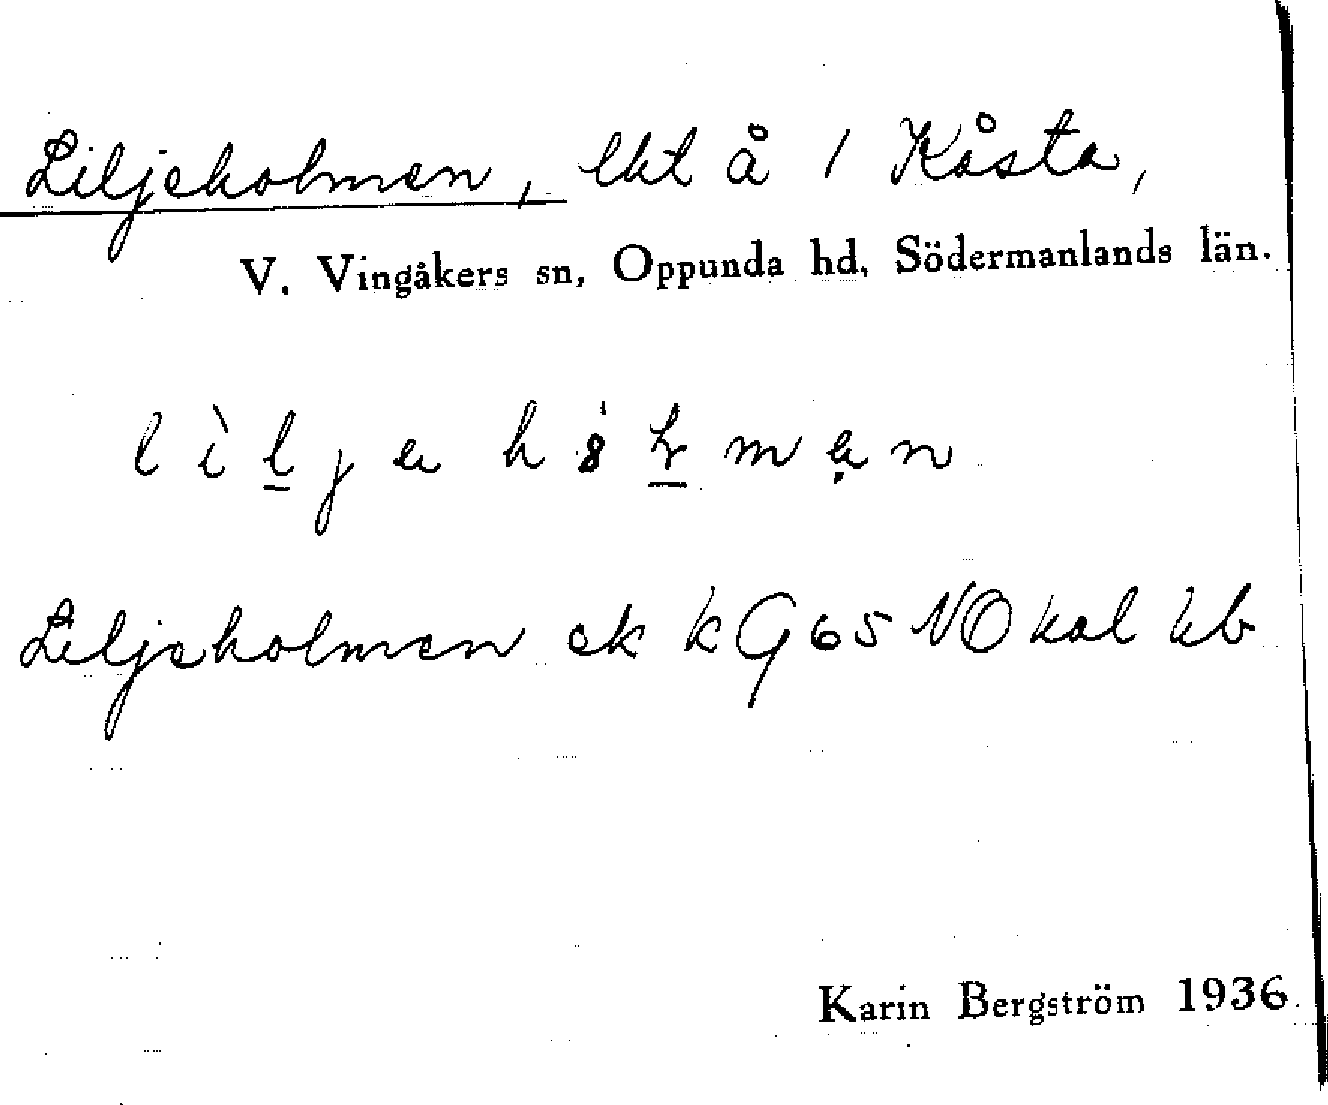 Liljeholmen, lht å 1 Kåsta,
V. Vingåkers sn, Oppunda hd, Södermanlands län.
Liljeholmen ek kG65 NO kal kb
Karin Bergström 1936.